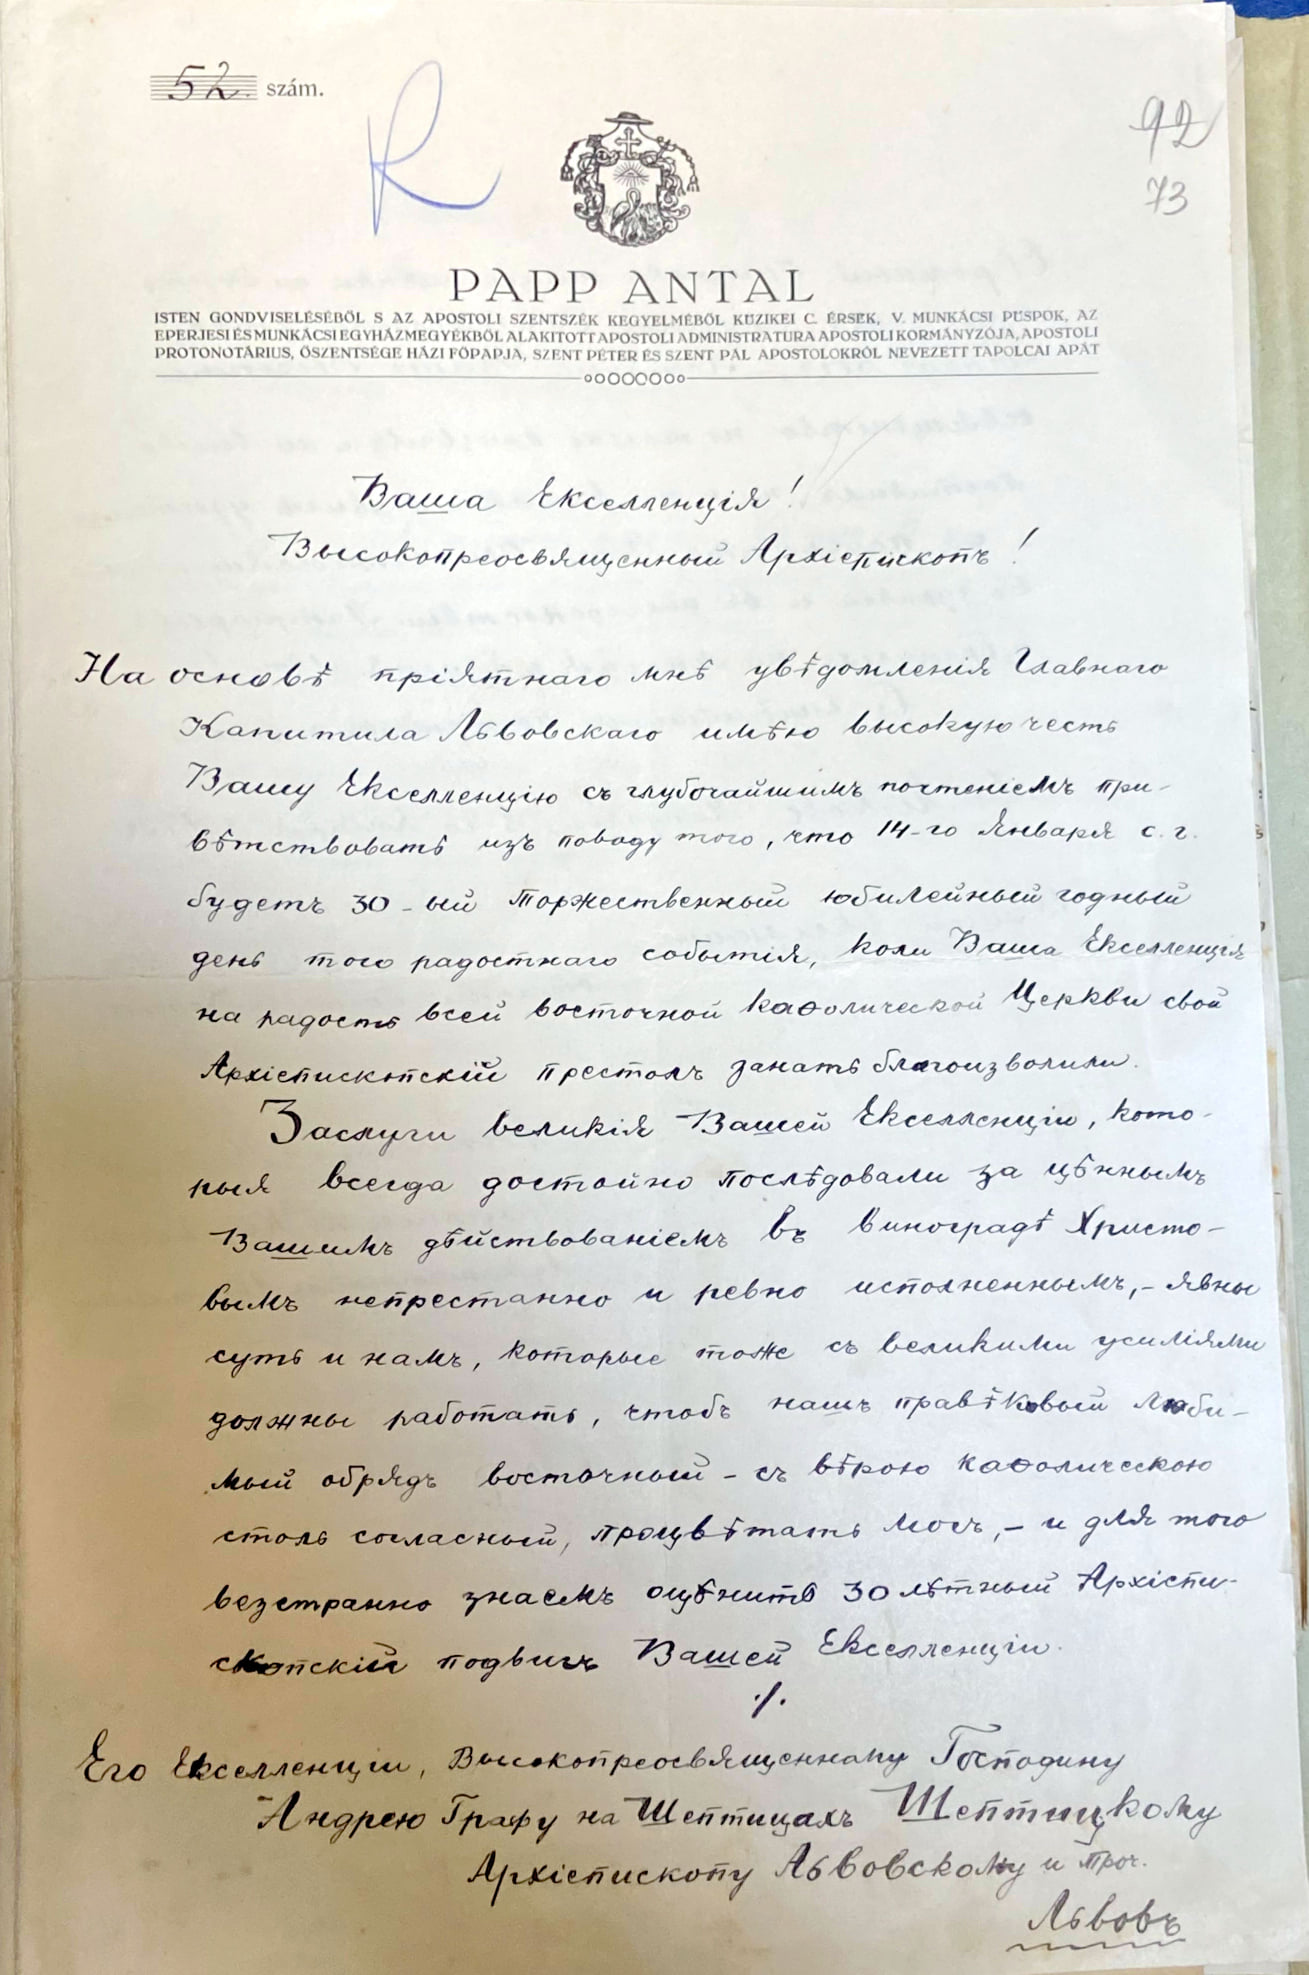 52. szám.
R
92
73
PAPP ANTAL
ISTEN GONDVISELÉSÉBŐL S AZ APOSTOLI SZENTSZÉK KEGYELMÉBŐL KÜZIKEI C. ÉRSEK, V. MUNKÁCSI PÜSPÖK, AZ
EPERJESI ÉS MUNKÁCSI EGYHÁZMEGYÉKBŐL ALAKITOTT APOSTOLI ADMINISTRATURA APOSTOLI KORMÁNYZÓJA, APOSTOLI
PROTONOTÁRIUS, ŐSZENTSÉGE HÁZI FŐPAPJA, SZENT PÉTER ÉS SZENT PÁL APOSTOLOKRÓL NEVEZETT TAPOLCAI APÁT
Ваша Екселленція!
Высокопреосвященный Архіепископъ!
На основѣ пріятнаго мнѣ увѣдомленія Главнаго
Капитила Львовскаго имѣю высокую честь
Вашу Екселленцію съ глубочайшимъ почтеніемъ при-
вѣтствовать изъ поводу того, что 14-го Января с. г.
будетъ 30-ый торжественный юбилейный годный
день того радостнаго событія, коли Ваша Екселленція
на радость всей восточной каѳолической Церкви свой
Архіепископскій престолъ занать благоизволили.
Заслуги великія Вашей Екселленціи, кото-
рыя всегда достойно послѣдовали за цѣннымъ
Вашимъ дѣйствованіемъ въ виноградѣ Христо-
вымъ непрестанно и ревно исполненнымъ,- явны
суть и намъ, которые тоже съ великими усиліями
должны работать, чтобъ нашъ правѣковый люби-
мый обрядъ восточный - съ вѣрою каѳолическою
столь согласный, процвѣтать могъ,- и для того
везстранно знаемъ оцѣнить 30 лѣтный Архіепи-
скопскій подвигъ Вашей Екселленціи.
./.
Его Екселленціи, Высокопреосвященному Господину
Андрею Графу на Шептицахъ Шептицкому
Архіепископу Львовскому и проч.
Львовъ